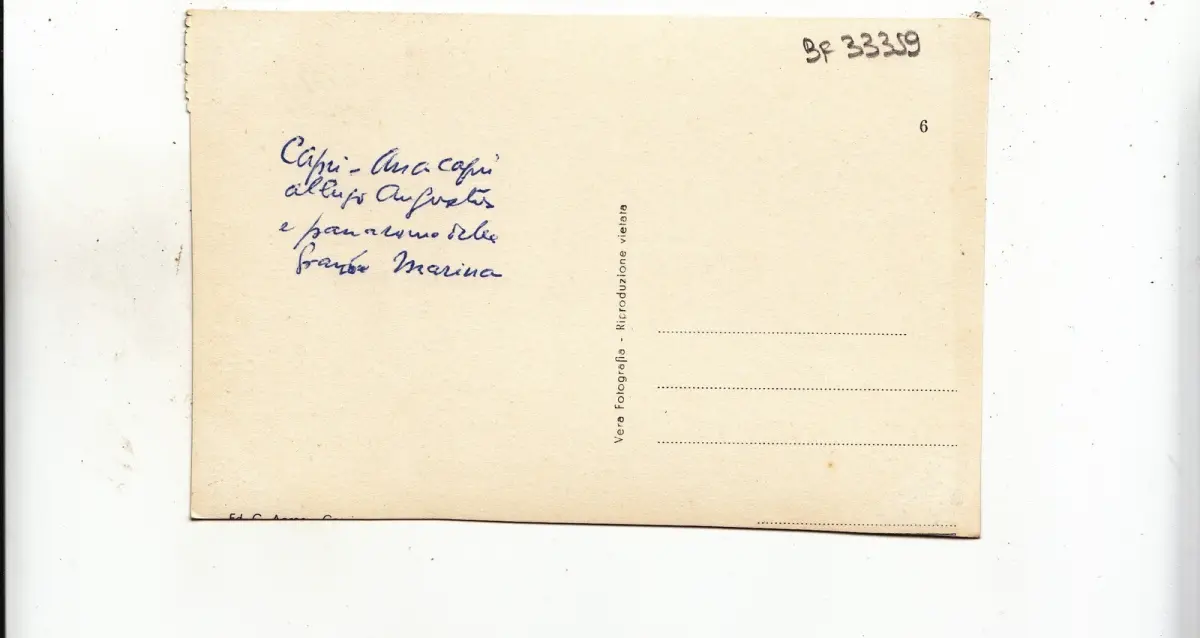 BF 33359
6
Capri - Anacapri
albergo Augustus
e panorama della
Grande Marina
Vera Fotografia - Riproduzione vietata